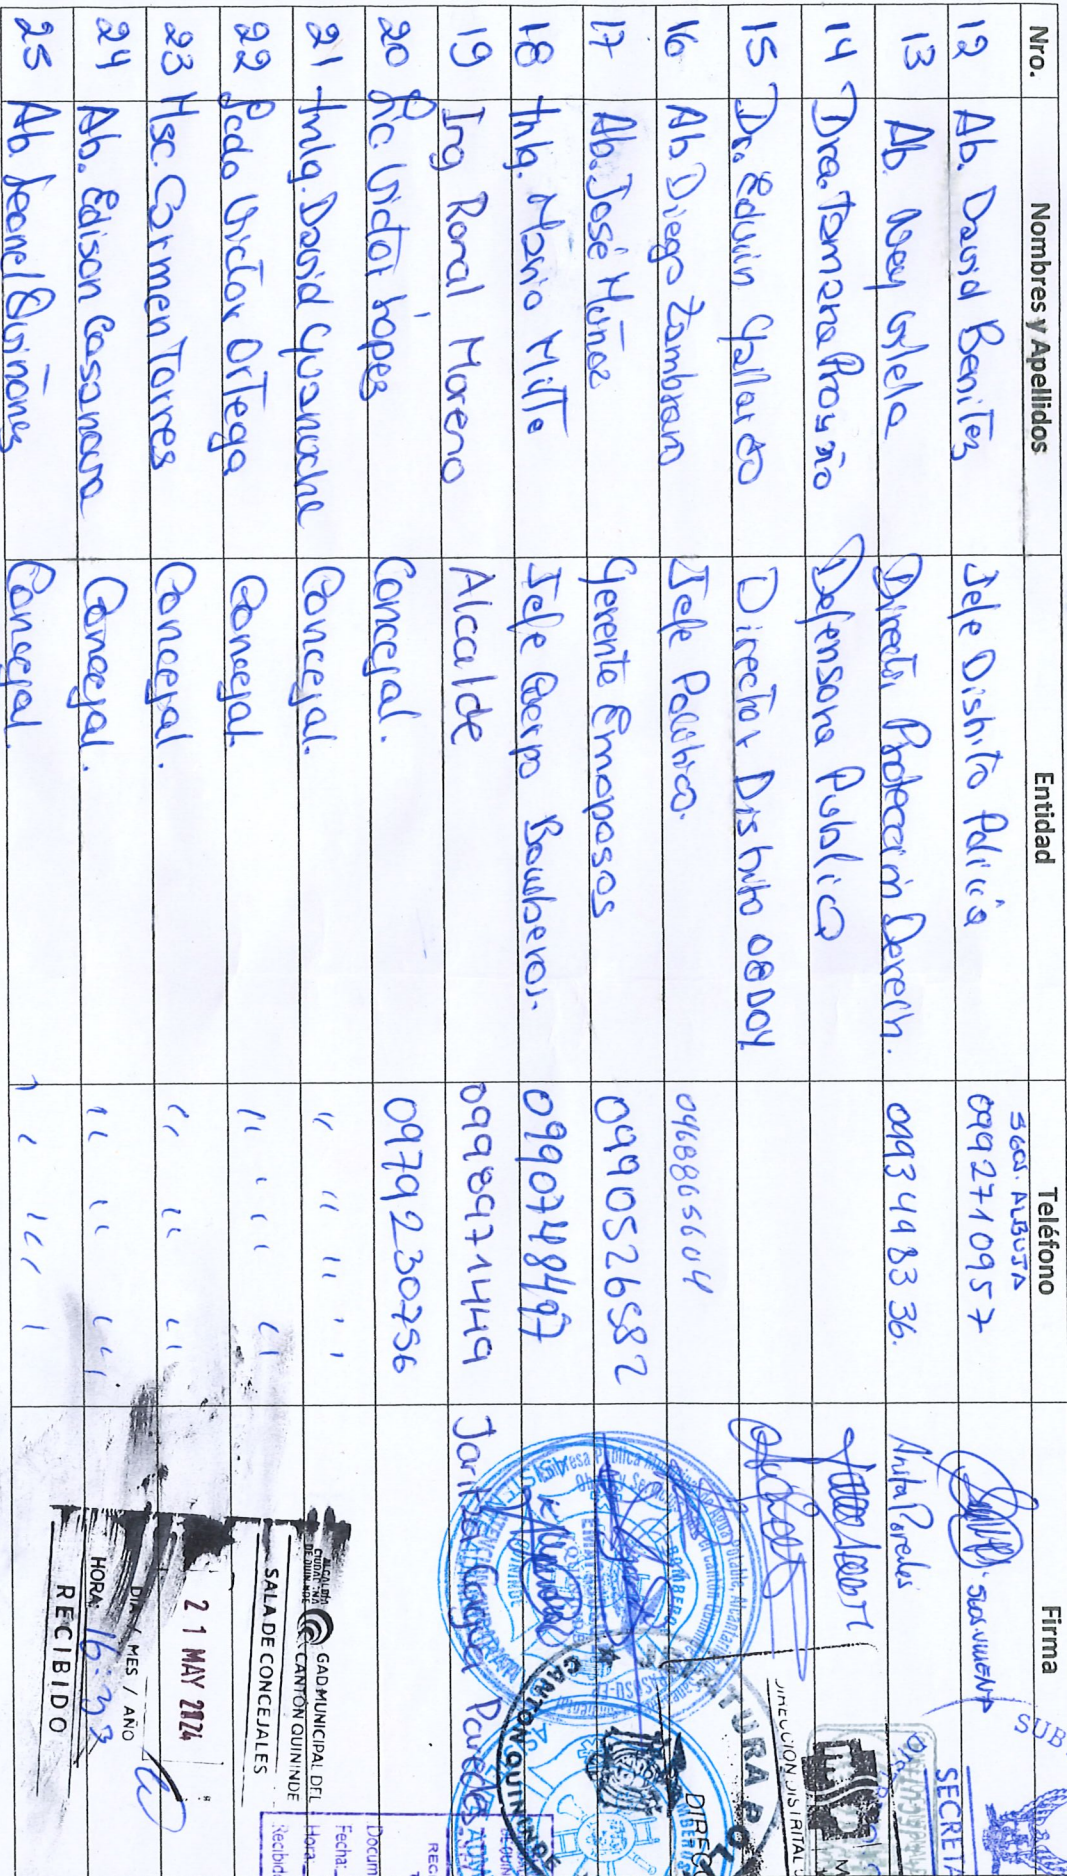 Nro. Nombres y Apellidos Entidad Teléfono Firma
12 Ab. David Benites Jefe Distrito Policía SGOS. ALBUJA 0992710957 SGOS. VILLENA
13 Ab. Ney Director Protección Derech. 0993498336. Anita Perales
14 Dra. Tamara Proaño Defensora Publica
15 Dr. Eduin Gallardo Director Distrito 08D04
16 Ab. Diego Zambrano Jefe Político. 0468865604
17 Ab. José Muñoz Gerente Emapasos 0990526582
18 Tnlg. Mario Mitte Jefe Cuerpo Bomberos. 0990748497
19 Ing Ronal Moreno Alcalde 0998971449 Paredes
20 Lic Victor Lopez Concejal. 0979230756
21 Tnlg. David Guanoche Concejal. " " " "
22 Lcdo Victor Ortega Concejal. " " " "
23 Msc. Carmen Torres Concejal. " " "
24 Ab. Edison Casanova Concejal. " " "
25 Ab. Leonel Quiñonez Concejal. " " "
SUB
SECRETA
DIRECCIÓN DISTRITAL
JEFATURA POL
CANTON QUININDE
DIREC
BOMBERO
GAD MUNICIPAL DEL
CANTÓN QUININDE
SALA DE CONCEJALES
21 MAY 2024
DIA / MES / AÑO
HORA: 16:33
RECIBIDO
REC
Docum
Fecha:
Hora:
Recibid